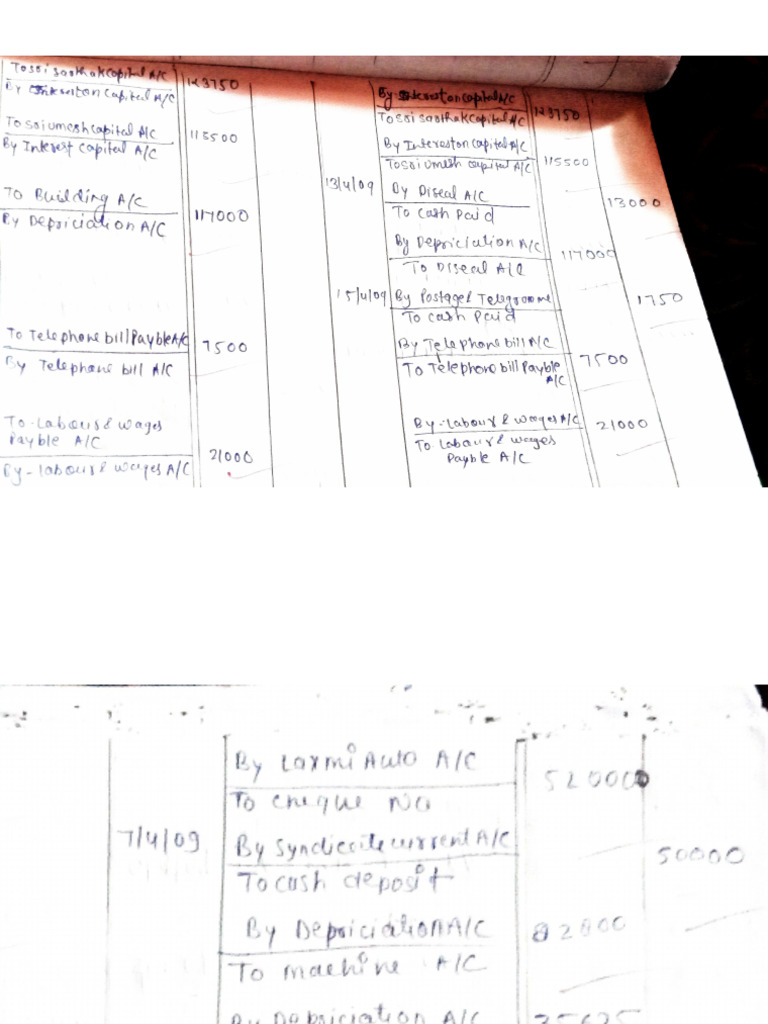 To sri sarthak capital A/C 123750
By Intreston capital A/C
To sri umesh capital A/C 115500
By Interest capital A/C
To Building A/C 117000
By Depriciation A/C
To Telephone bill Payble A/C 7500
By Telephone bill A/C
To Labour & wages
Payble A/C 21000
By - labour & wages A/C
By Intreston capital A/C 123750
To sri sarthak capital A/C
By Intereston capital A/C 115500
To sri umesh capital A/C
13/4/09 By Diseal A/C 13000
To cash Paid
By Depriciation A/C 117000
To Diseal A/C
15/4/09 By Postage & Telegromme 1750
To cash Paid
By Telephone bill A/C 7500
To Telephone bill Payble
A/C
By - labour & wages A/C 21000
To labour & wages
Payble A/C
By Laxmi Auto A/C 52000
To cheque No
7/4/09 By Syndiecite current A/C 50000
To cash deposit
By Depriciation A/C 82000
To machine A/C
By Depriciation A/C 35625